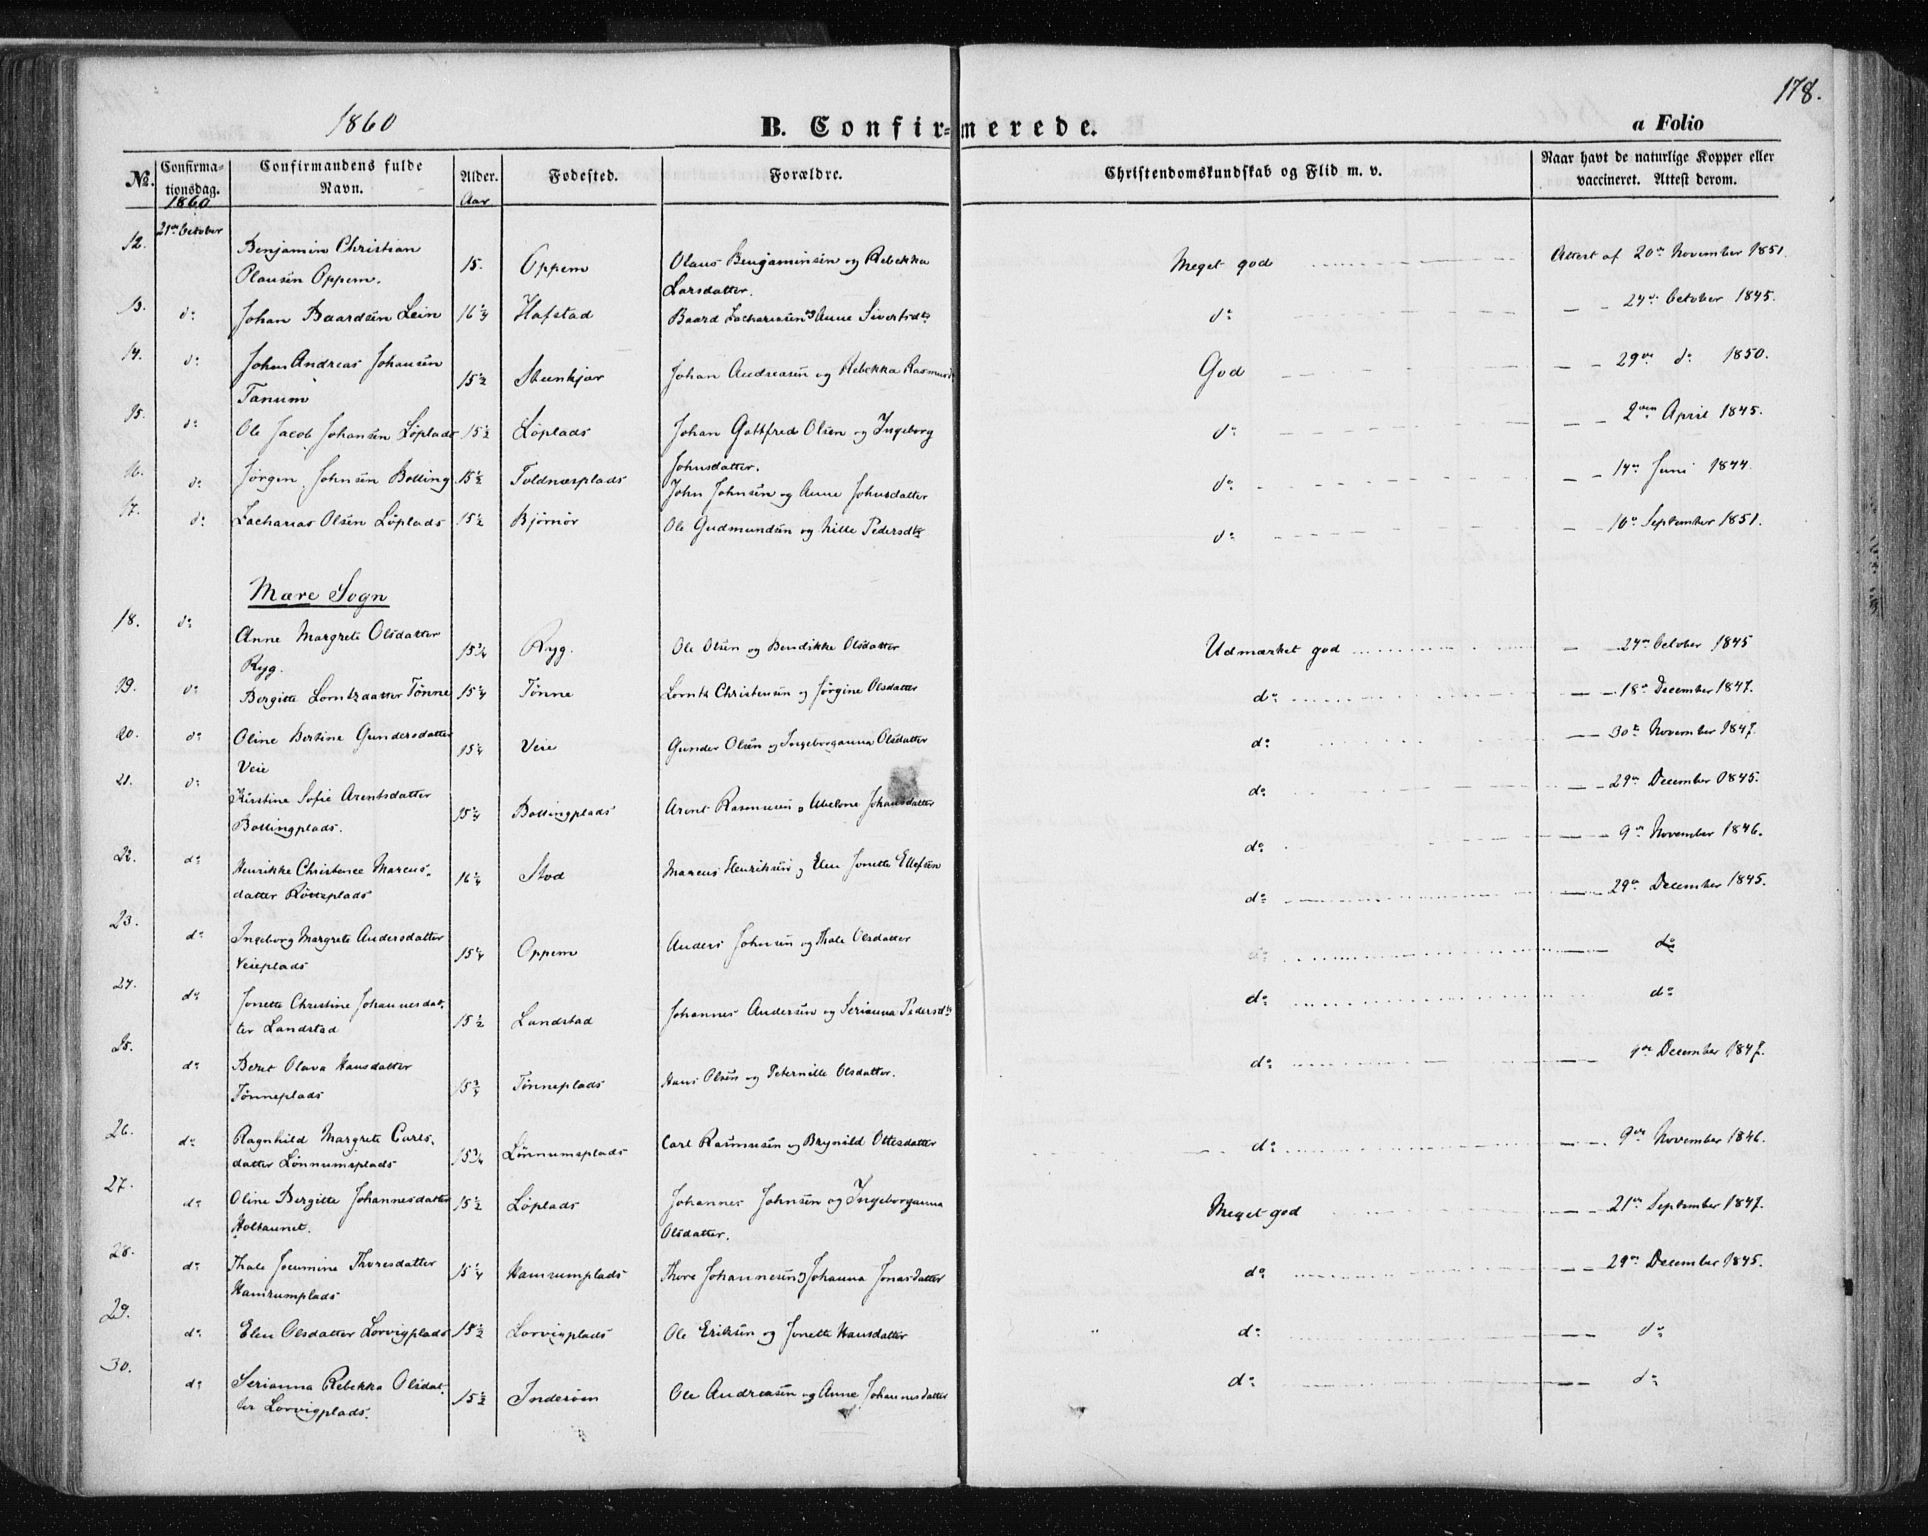 178.
1860
B. Confirmerede.
a Folio
No. Confirmationsdag. Confirmandens fulde Navn. Alder. Fødested. Forældre. Christendomskundskab og Flid m. v. Naar havt de naturlige Kopper eller vaccineret. Attest derom.
1860 Aar
12. 21de October Benjamin Christian Olausen Oppem. 15. Oppem Olaus Benjaminsen og Rebekka Larsdatter. Meget god Attest af 20de November 1851.
13. do Johan Baardsen Lein 16 1/4 Hafstad Baard Zachariasen og Anne Sivertsdtr do — 24de October 1845.
14. do Johan Andreas Johansen Tanum 15 1/2 Steenkjær Johan Andreasen og Rebekka Rasmusd God — 29de do 1850.
15. do Ole Jacob Johansen Löplads 15 1/2 Löplads Johan Gottfred Olsen og Ingeborg Johnsdatter. do — 2den April 1845.
16. do Jörgen Johnsen Bolling 15 1/2 Toldnæsplads John Johnsen og Anne Johnsdatter do — 14de Juni 1844.
17. do Zacharias Olsen Löplads 15 1/2 Bjørnør Ole Gudmundsen og Nille Pedersdtr do — 10de September 1851.
Mære Sogn
18. do Anne Margrete Olsdatter Ryg. 15 3/4 Ryg. Ole Olsen og Bendikke Olsdatter Udmærket god — 24de October 1845
19. do Bergitte Lorntzdatter Tönne 15 1/4 Tönne Lorntz Christensen og Jörgine Olsdatter do — 18de December 1847.
20. do Oline Bertine Gundersdatter Veie 15 1/4 Veie Gunder Olsen og Ingeborganna Olsdatter do — 30te November 1847.
21. do Kirstine Sofie Arentsdatter Bollingplads. 15 1/4 Bollingplads Arent Rasmusen og Abelone Johansdatter do — 29de December 1845.
22. do Henrikke Christence Marcusdatter 16 1/4 Stod Marcus Henriksen og Elen Jonette Ellefsen do — 9de November 1846.
23. do Ingeborg Margrete Andersdatter Veieplads 15 1/4 Oppem Anders Johnsen og Thale Olsdatter do — 29de December 1845.
do
24. do Jonette Christine Johannesdatter Landstad 15 1/2 Landstad Johannes Andersen og Serianna Pedersdtr do do
25. do Beret Olava Hansdatter Tönneplads 15 3/4 Tönneplads Hans Olsen og Peternille Olsdatter. do — 9de December 1847.
26. do Ragnhild Margrete Carlsdatter Lönnumsplads 15 3/4 Lönnumsplads Carl Rasmusen og Brynild Ottesdatter do — 9de November 1846.
27. do Oline Bergitte Johannesdatter Holtaunet. 15 1/2 Löplads Johannes Johnsen og Ingeborganna Olsdatter. Meget god — 21de September 1847.
28. do Thale Joemine Thoresdatter Hamrumplads 15 1/4 Hamrumplads Thore Johannesen og Johanna Jonasdatter do — 29de December 1845.
29. do Elen Olsdatter Lorvigplads 15 1/2 Lorvigplads Ole Eriksen og Jonette Hansdatter do — do
30. do Serianna Rebekka Olsdatter Lorvigplads. 15 1/2 Inderöen Ole Andreasen og Anne Johannesdatter do — do